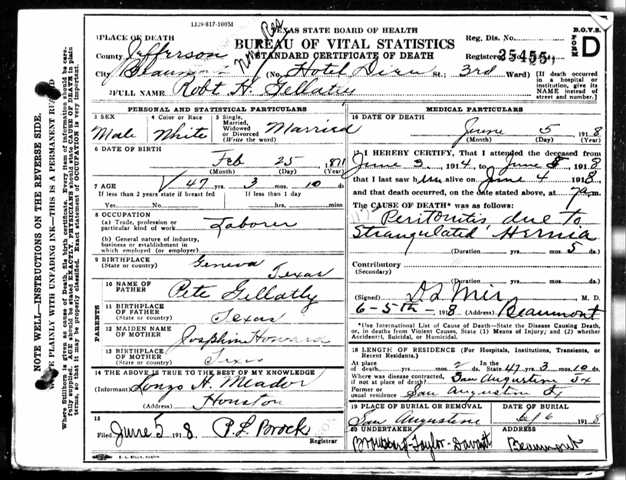 1139-817-100M
TEXAS STATE BOARD OF HEALTH
BUREAU OF VITAL STATISTICS
STANDARD CERTIFICATE OF DEATH
B.O.V.S.
FORM D
PLACE OF DEATH
County Jefferson
City Beaumont (No. Hotel Dieu St. 3rd Ward)
Reg. Dis. No.
Registered 25455
[If death occurred in a hospital or institution, give its NAME instead of street and number.]
FULL NAME Robt H. Gellatly
PERSONAL AND STATISTICAL PARTICULARS
3 SEX Male
4 Color or Race White
5 Single, Married, Widowed or Divorced (Write the word) Married
6 DATE OF BIRTH
Feb 25 1871
(Month) (Day) (Year)
7 AGE 47 yrs. 3 mos. 10 ds.
If less than 2 years state if breast fed If less than 1 day
8 OCCUPATION
(a) Trade, profession or particular kind of work Laborer
(b) General nature of industry, business or establishment in which employed (or employer)
9 BIRTHPLACE
(State or country) Geneva Texas
PARENTS
10 NAME OF FATHER Pete Gellatly
11 BIRTHPLACE OF FATHER (State or country) Texas
12 MAIDEN NAME OF MOTHER Josephine Howard
13 BIRTHPLACE OF MOTHER (State or country) Texas
14 THE ABOVE IS TRUE TO THE BEST OF MY KNOWLEDGE
(Informant) Lonzo H. Meador
(Address) Houston
15
June 5 1918 P. L. Brock
Registrar
MEDICAL PARTICULARS
16 DATE OF DEATH
June 5 1918
(Month) (Day) (Year)
I HEREBY CERTIFY, That I attended the deceased from
June 3, 1914 to June 5 1918
that I last saw him alive on June 4 1918
and that death occurred, on the date stated above, at 7 a m.
The CAUSE OF DEATH* was as follows:
Peritonitis due to
Strangulated Hernia
(Duration yrs. mos. 5 ds.
Contributory
(Secondary)
(Duration yrs. mos. ds.
(Signed) M. D.
6-5th-1918 (Address) Beaumont
*Use International List of Cause of Death—State the Disease Causing Death, or, in deaths from Violent Causes, State (1) Means of Injury; and (2) whether Accidental, Suicidal, or Homicidal.
18 LENGTH OF RESIDENCE (For Hospitals, Institutions, Transients, or Recent Residents.)
At place of death yrs. mos. 2 ds. In the State 47 yrs. 3 mos. 10 ds.
Where was disease contracted, if not at place of death? San Augustine Tx
Former or usual residence San Augustine Tx
19 PLACE OF BURIAL OR REMOVAL
San Augustine
DATE OF BURIAL
6/6 1918
20 UNDERTAKER
Broussard-Taylor-Davant
ADDRESS
Beaumont
NOTE WELL—INSTRUCTIONS ON THE REVERSE SIDE.